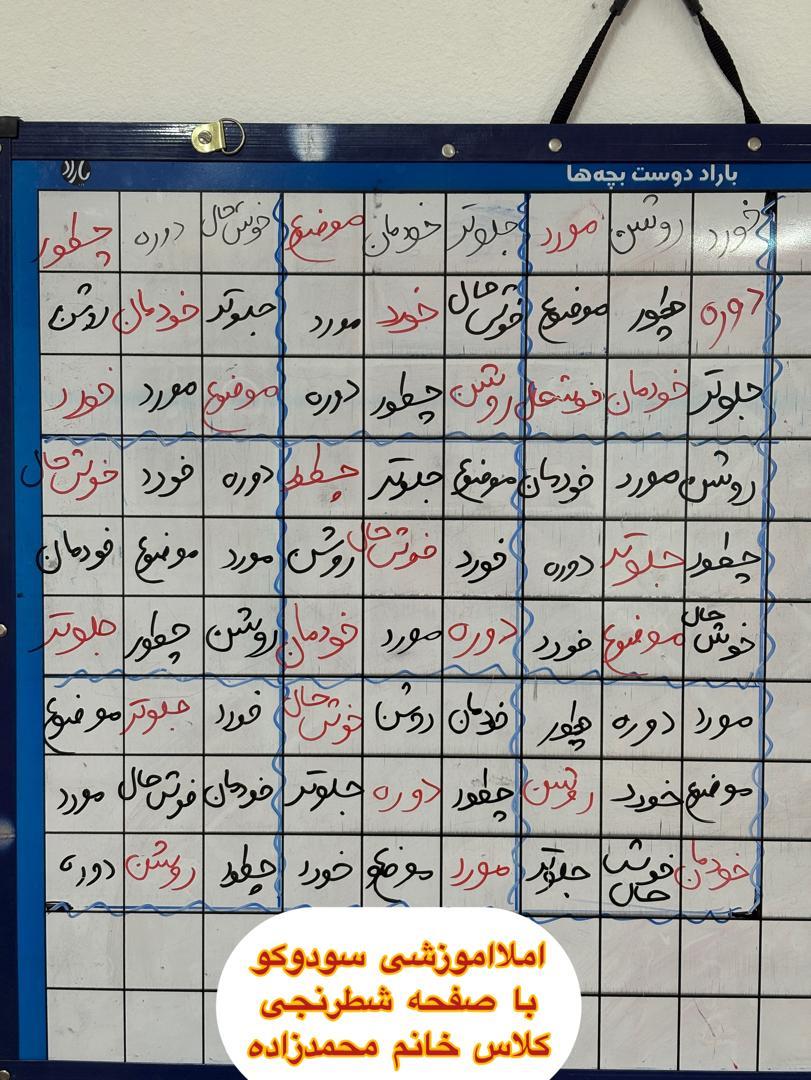 باراد دوست بچه‌ها باراد
خورد روشن مورد جلوتر خودمان موضوع خوش‌حال دوره چطور
دوره چطور موضوع خوش‌حال خورد مورد جلوتر خودمان روشن
جلوتر خودمان خوشحال روشن چطور دوره موضوع مورد خورد
روشن مورد خودمان موضوع جلوتر چطور دوره خورد خوش‌حال
چطور جلوتر دوره خورد خوش‌حال روشن مورد موضوع خودمان
خوش‌حال موضوع خورد دوره مورد خودمان روشن چطور جلوتر
مورد دوره چطور خودمان روشن خوش‌حال خورد جلوتر موضوع
موضوع خورد روشن چطور دوره جلوتر خودمان خوش‌حال مورد
خودمان خوش‌حال جلوتر مورد موضوع خورد چطور روشن دوره
املااموزشی سودوکو
با صفحه شطرنجی
کلاس خانم محمدزاده